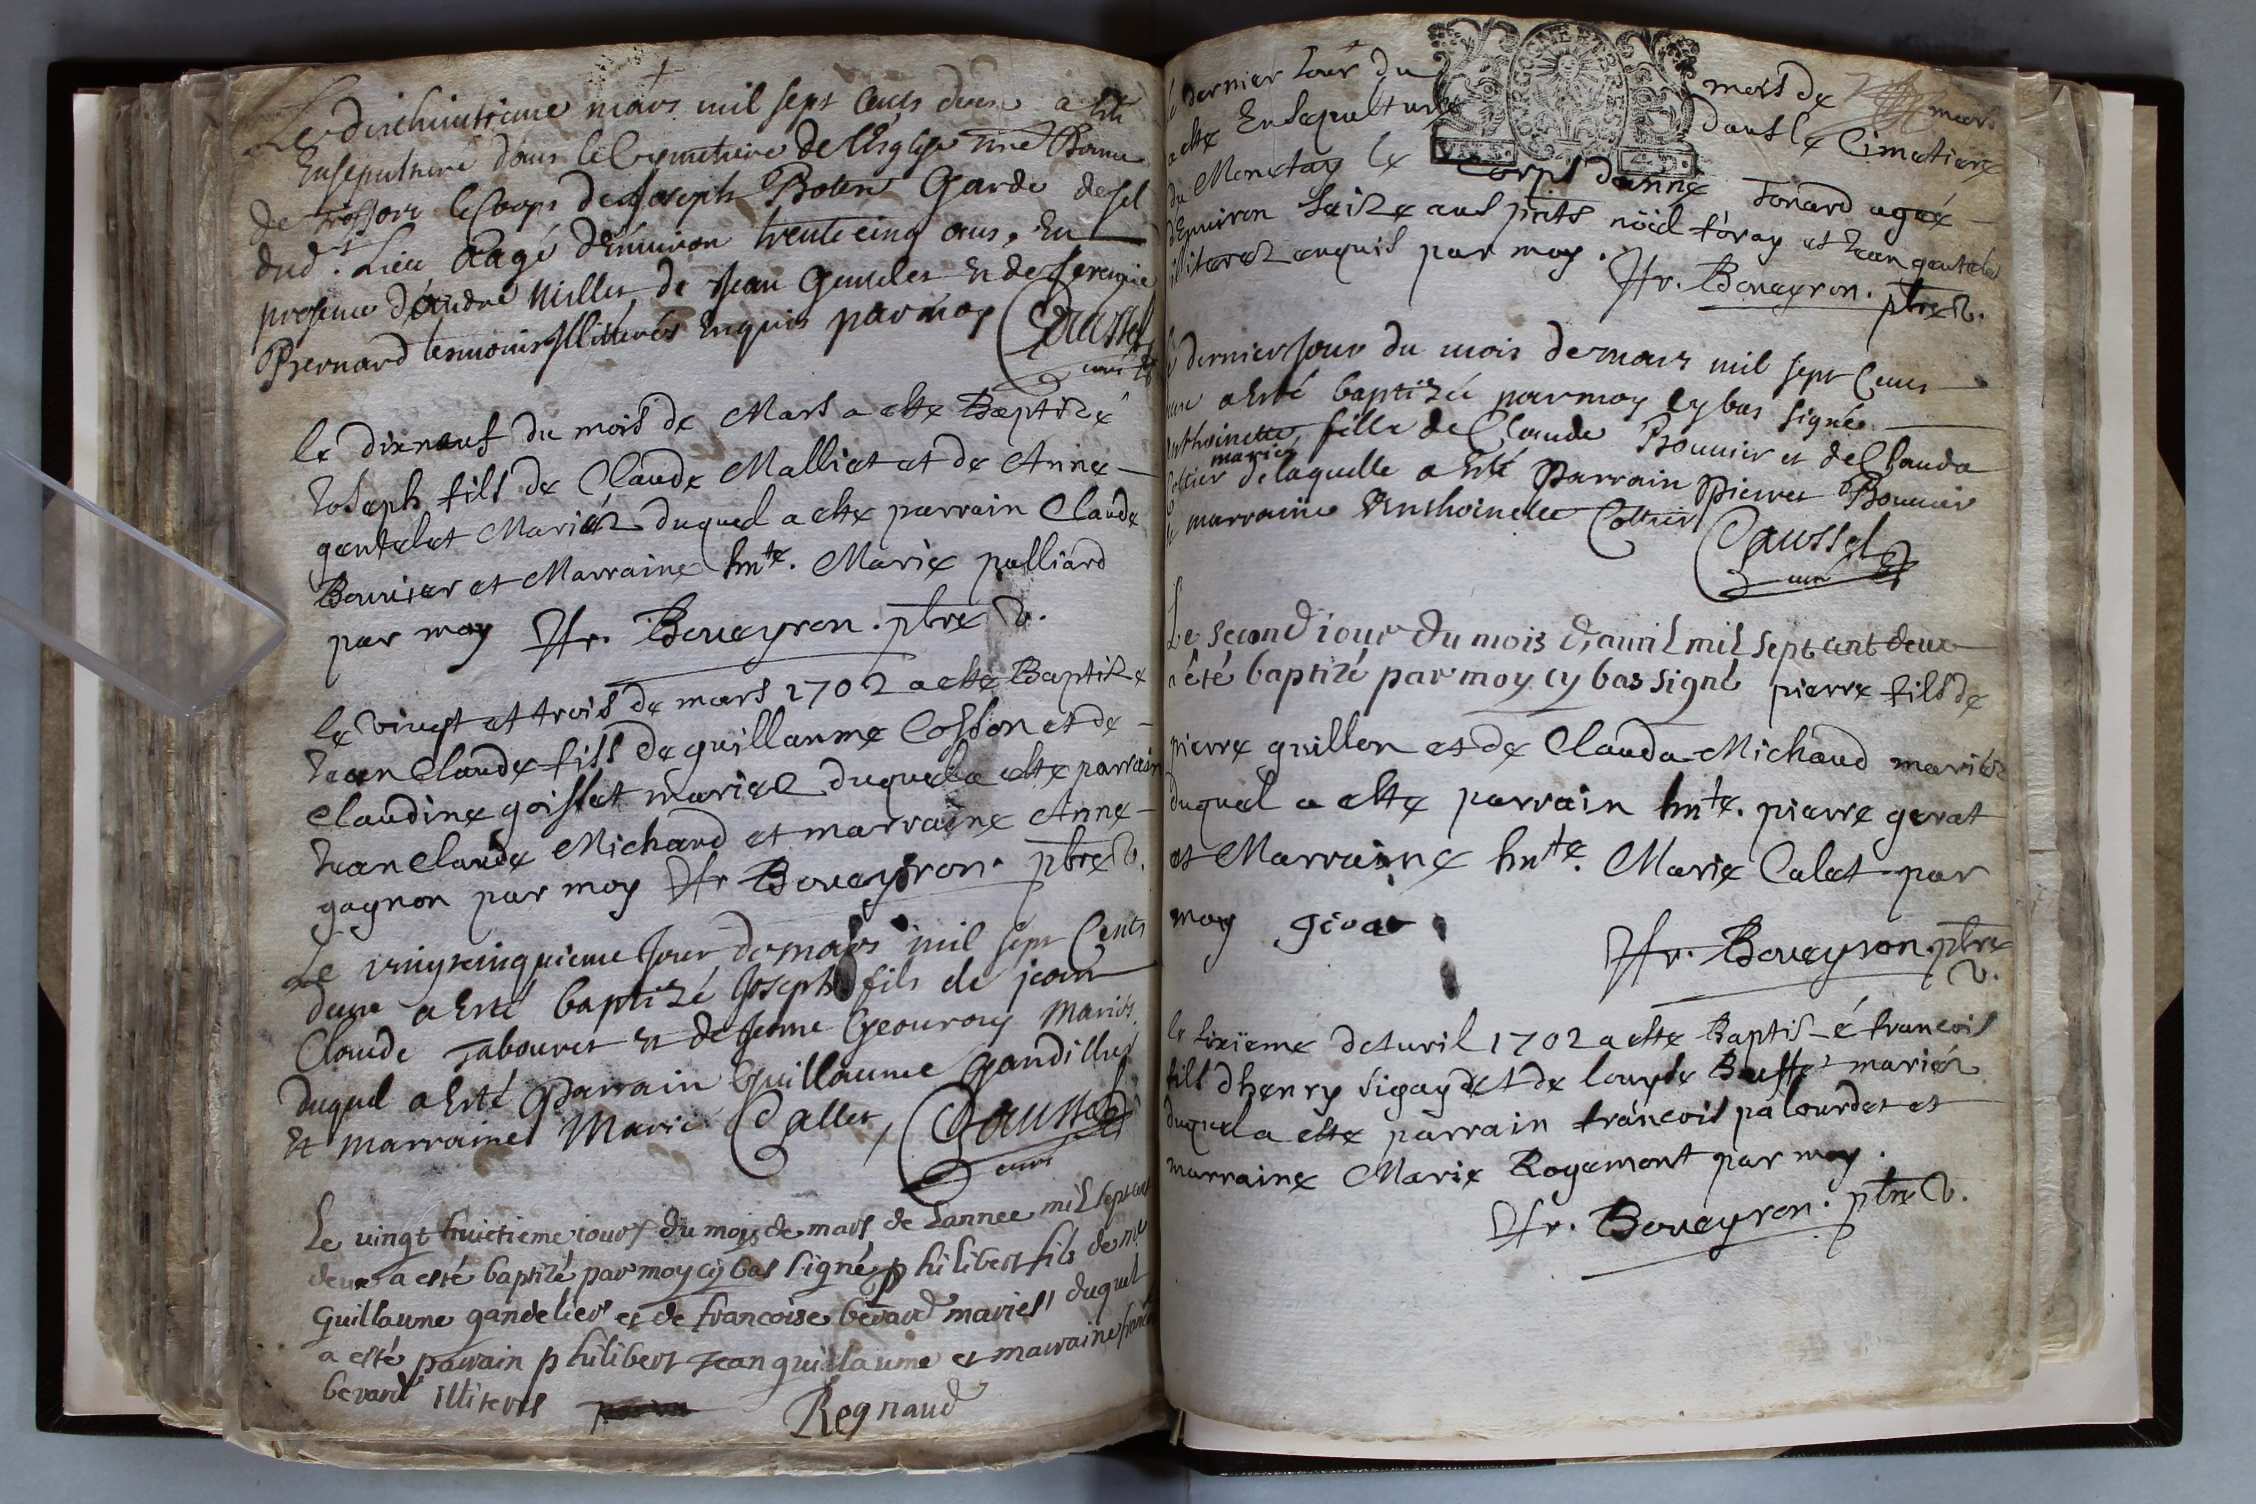 Le dixhuitieme mars mil sept Cents deux a Eté
Ensepulturé dans le Cymetiere de l'Esglise
de le Corps de Joseph Boten Garde de sel
dud.t Lieu aagé d'Enuiron trente cinq ans, En
presence d'andré Millet de Jean Gentelet et de
Bernard temoins Illiterés Enquis par moy Caussel
curé
le dixneuf du mois de Mars a este Baptizé
Joseph fils de Claude Malliet et de Anne
gentelet Mariéz duquel a este parrain Claude
Bouuier et Marraine hnte. Marie palliard
par moy Fr. Boueyron. pbre V.
le vingt et trois de mars 1702 a este Baptize
Jean Claude fils de guillaume Cosson et de
Claudine goisset mariez duquel a este parrain
Jean Claude Michaud et marraine Anne
gagnon par moy Fr Boueyron. pbre V.
Le vingtcinquieme Jour de mars mil sept Cents
deux a Esté baptizé Joseph fils de jean
Claude Tabouret Et de Jeanne Geouroy Mariés
duquel a Esté Parrain Guillaume Gandillet
Et marraine Marie Callet, Caussel
curé
Le uingt huictieme iour du mois de mars de Lannee mil sept cent
deux a esté baptizé par moy cy bas signé philibert fils de me
Guillaume gandelier et de francoise berard mariés duquel
a esté parrain philibert Jean guillaume et marraine
berard illiterés
Regnaud
le dernier Jour du mois de mars
a este Ensepulture dans le Cimetiere
du Monetay le Corps danne Tonard agée
d'Enuiron Seize ans pnts nöel foray et Jean gentelet
illiterez enquis par moy. Fr. Boueyron. pbre V.
Le dernier Jour du mois de mars mil sept Cens
deux a Esté baptizée par moy cy bas signée
Anthoinette fille de Claude Bouuier et de Clauda
mariés
Cottier de laquelle a Esté Parrain Pierre Bouuier
et marraine Anthoinette Cottier Caussel
curé
Le second iour du mois d'auril mil sept cent deux
a été baptizé par moy cy bas signé pierre fils de
pierre guillon et de Clauda Michaud mariéz
duquel a este parrain hnte. pierre gerat
et Marraine hnte. Marie Calet par
moy
Fr. Boueyron. pbre
V.
le sixième dAuril 1702 a este Baptis-é francois
fils dhenry sigayd et de louyse Buffet mariéz
duquel a este parrain francois palourdet et
marraine Marie Rogemont par moy.
Fr. Boueyron. pbre V.